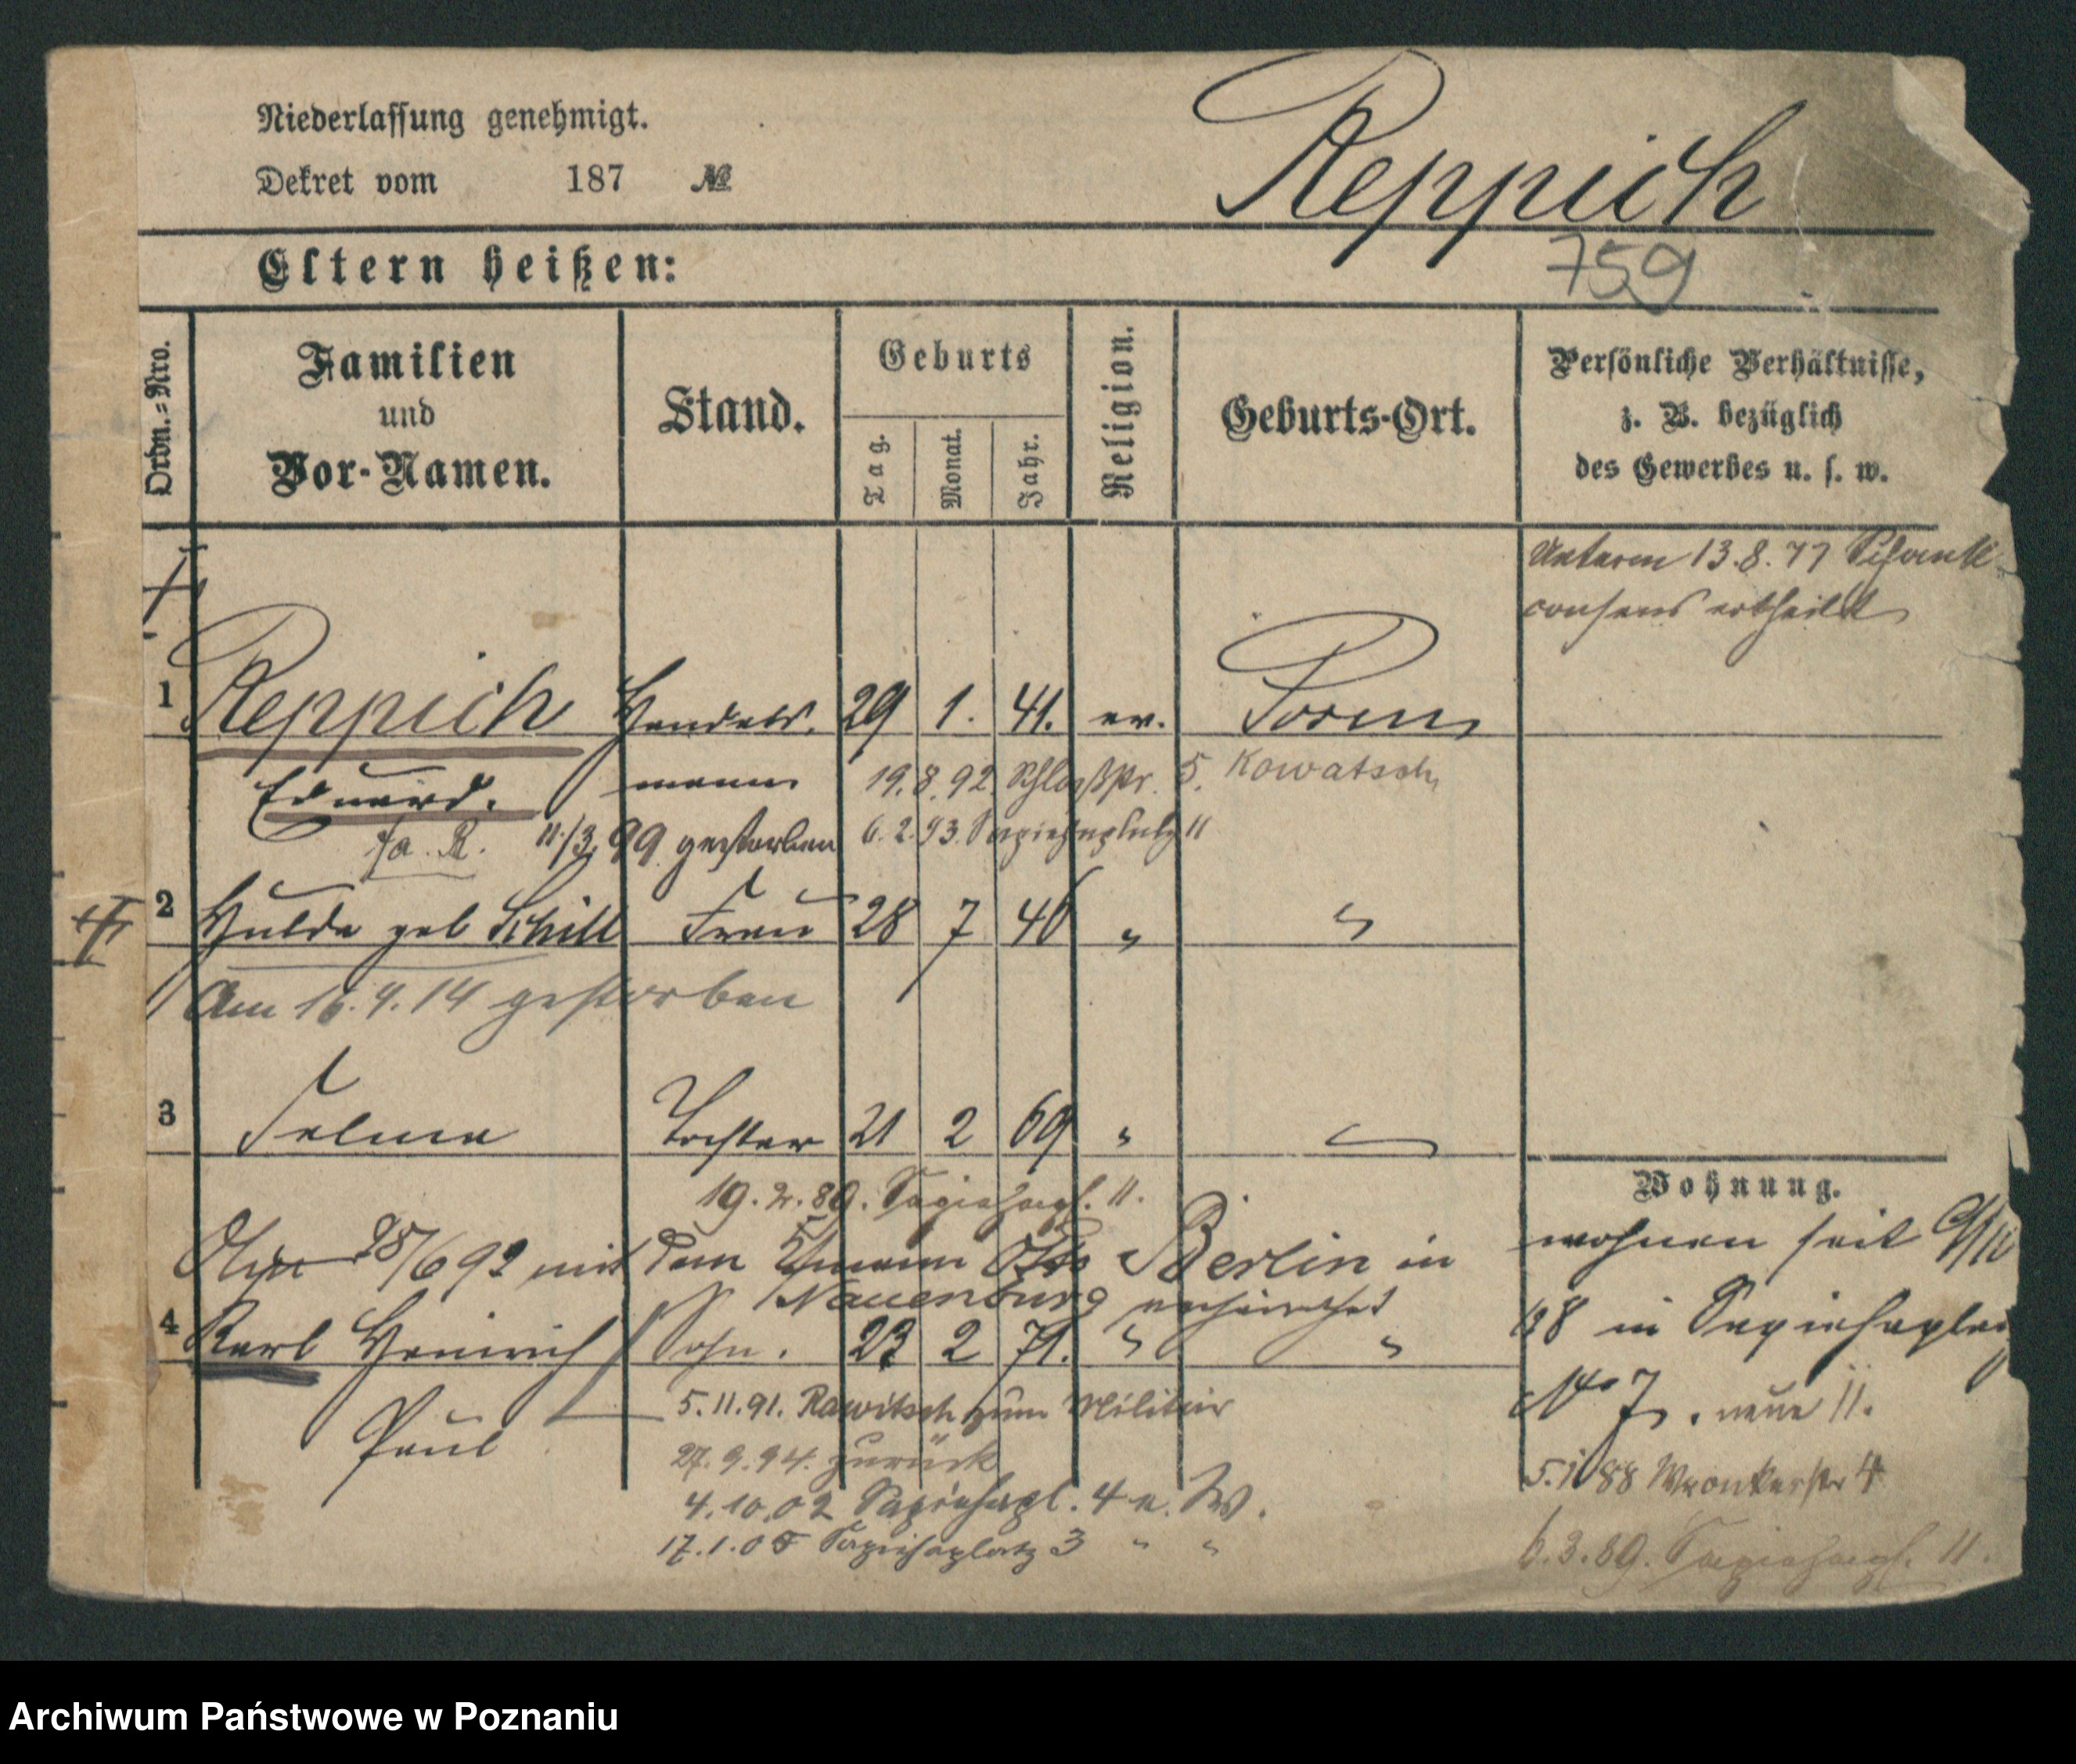 Niederlassung genehmigt.
Dekret vom 187 №
Reppich
759
Eltern heißen:
Ordn.=Nro.
Familien
und
Vor-Namen.
Stand.
Geburts
Tag.
Monat.
Jahr.
Religion.
Geburts-Ort.
Persönliche Verhältnisse,
z. B. bezüglich
des Gewerbes u. s. w.
Unterm 13.8.77 Schank
consens ertheilt
1 Reppich Handels. 29 1. 41. ev. Posen
Eduard. mann 19.8.92. Schloßstr. 5. Kowatsch
11/3 99 gestorben 6.2.93. Sapiehaplatz 11
2 Hulda geb Schill Frau 28 7 46 " "
Am 16.4.14 gestorben
3 Selma Tochter 21 2 69 "
19.2.89. Sapiehapl. 11.
28/6 92 mit dem Berlin in
Nauenburg verheirathet
4 Karl Heinrich Sohn. 23 2 71. " "
Paul
5.11.91. Rawitsch zum Militair
27.9.94. zurück
4.10.02 Sapiehapl. 4 n. W.
17.1.05 Sapiehaplatz 3 " "
Wohnung.
wohnen seit
68 in Sapiehaplatz
No 7. neue 11.
88 Wronkerstr 4
6.3.89. Sapiehapl. 11.
Archiwum Państwowe w Poznaniu